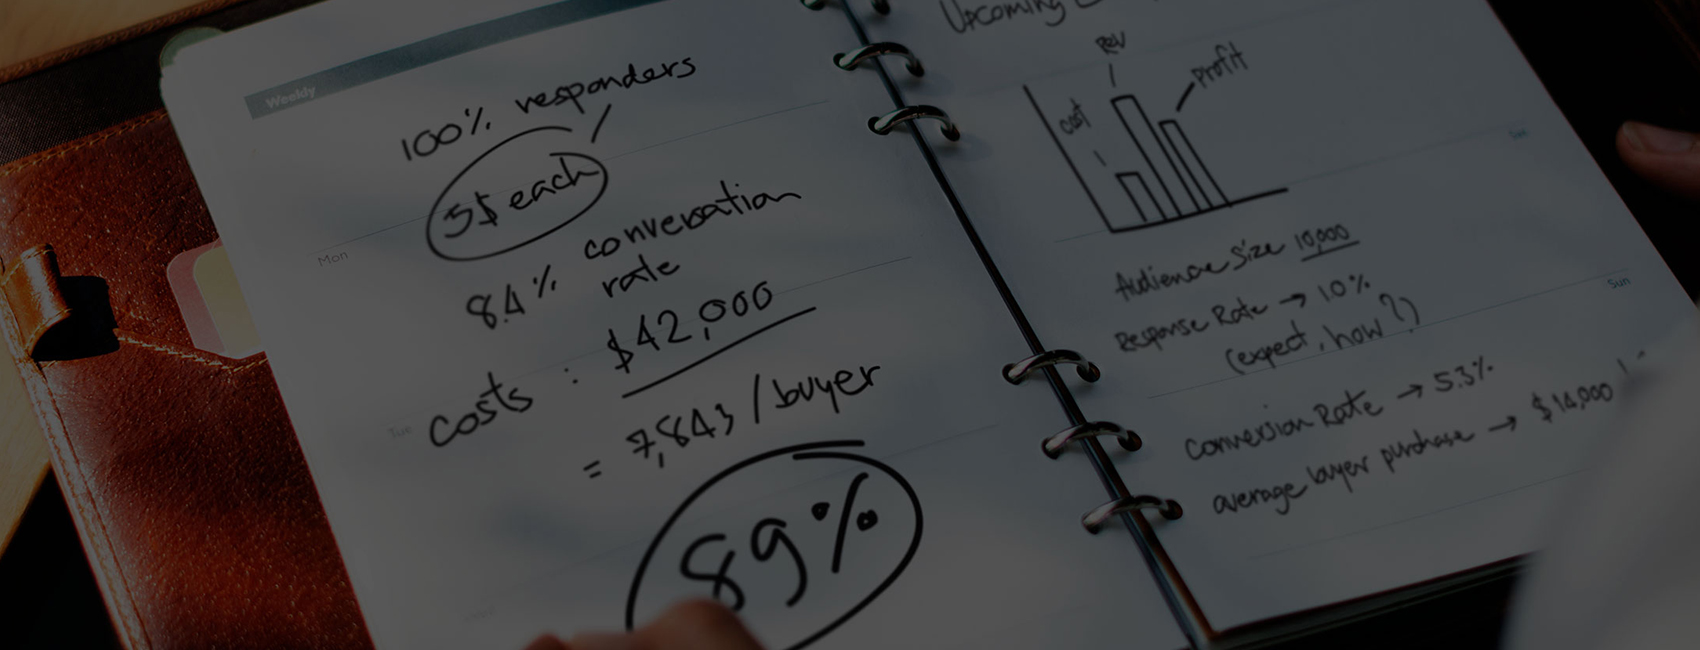 Weekly
100% responders
5$ each
Mon
8.4% conversation
rate
costs : $42,000
Tue
= 7,843 / buyer
89%
Upcoming
Rev
Profit
cost
Sat
Audience Size 10,000
Sun
Response Rate → 1.0%
(expect, how?)
Conversion Rate → 5.3%
average buyer purchase → $14,000